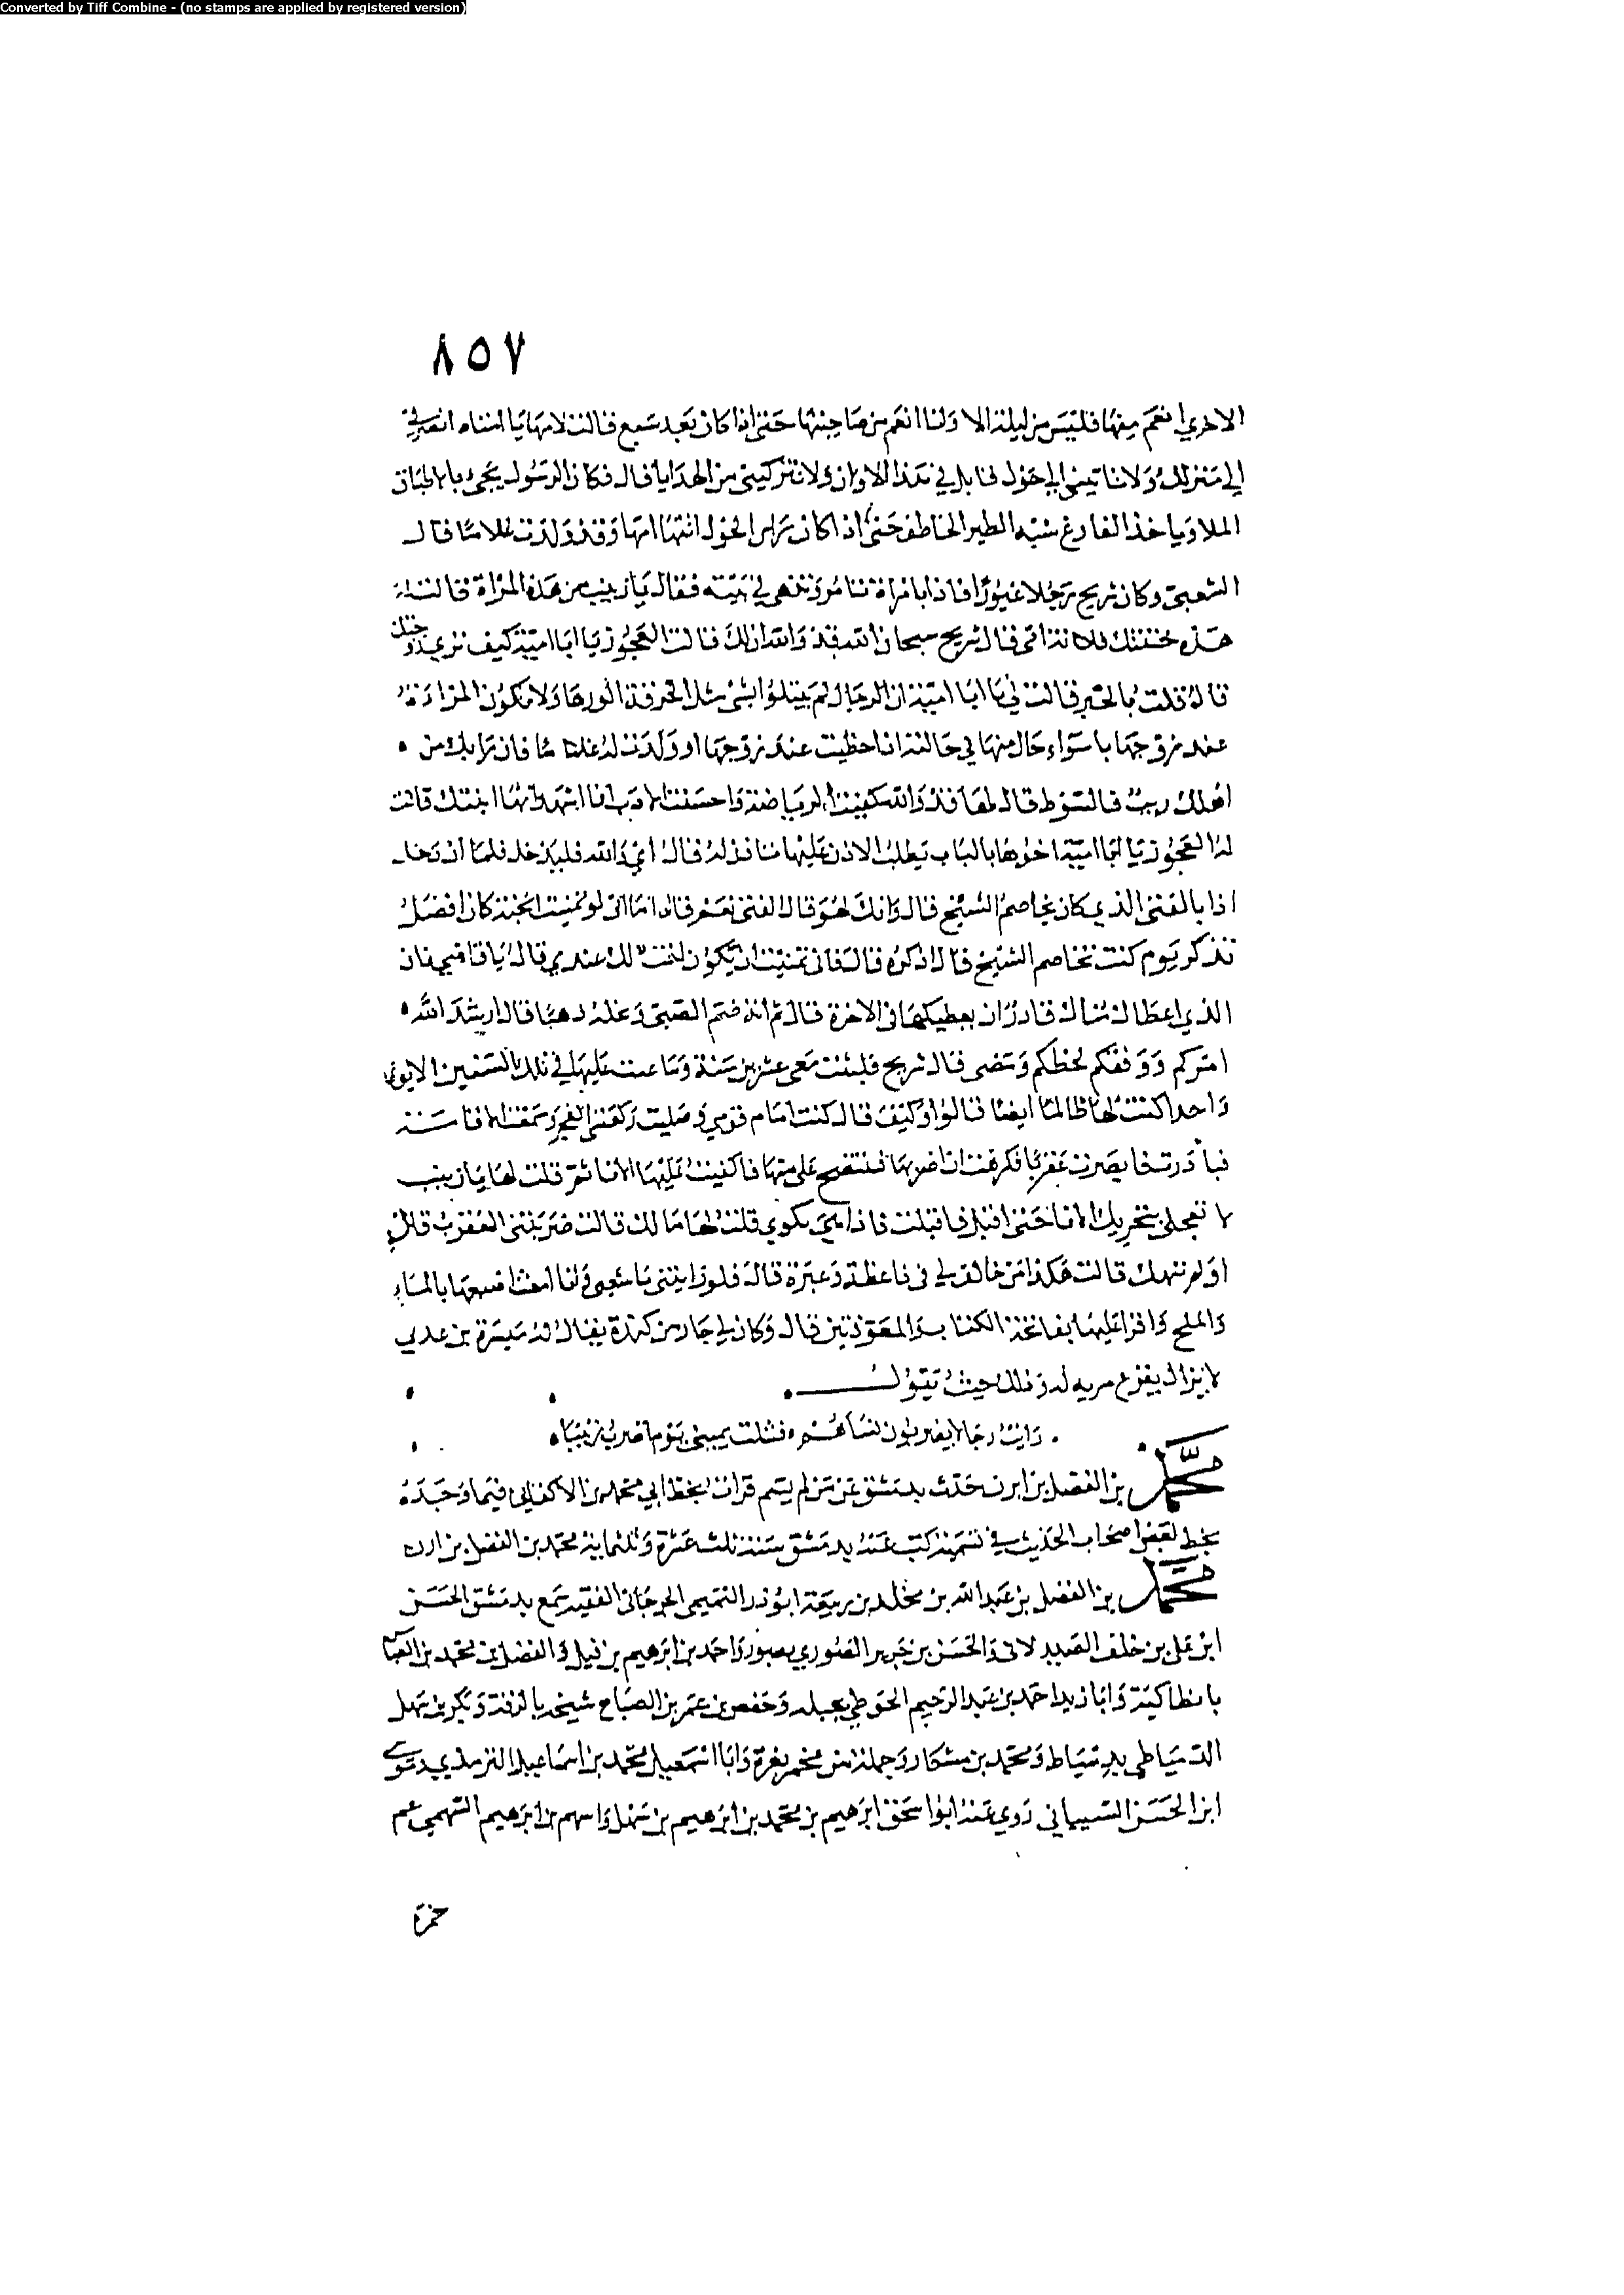 Converted by Tiff Combine - (no stamps are applied by registered version)
٨٥٧
الاخري انعم منها فليس من ليلة الا وانا انعم من صاحبتها حتى اذا كان بعد سبع قالت لامها يا امتاه انصرفي
الي منزلك ولا تاتيني الي حول قابل في هذا الاوان ولا تتركيني من الهدايا قال فكان الرسول يجئ بالاطباق
الملا وياخذ الفارغ شبه الطير الخاطف حتى اذا كان راس الحول اتتها امها وقد ولدت غلاما قال
الشعبي وكان شريح رجلا غيورا فاذا بامراة تامر وتنهي في بيته فقال يا زينب من هذه المراة قالت
هذه ختنتك فلانة امي قال شريح سبحان الله قد والله ان لك قالت العجوز يا ابا امية كيف تري زوجتك
قال قلت بالخير قالت لي يا ابا امية ان الرجال لم يبتلوا بشئ مثل الخرقة الورها ولا تكون المراة
عند زوجها باسواء حال منها في حالتين اذا حظيت عند زوجها او ولدت له غلاما فان رابك من
اهلك ريب فالسوط قال لها قد والله كفيت الرياضة واحسنت الادب انا اشهد انها ابنتك قالت
له العجوز يا ابا امية اخوها بالباب يطلب الاذن عليها تاذن له قال اي والله فليدخل فلما ان دخل
اذا بالفتى الذي كان يخاصم الشيخ قال وانك لهو قال الفتى نعم قال اما اني لو تمنيت الجنة كان افضل
تذكر يوم كنت تخاصم الشيخ قال اذكره قال فاني تمنيت ان تكون اختك عندي قال يا قاضي فان
الذي اعطاك مناك قادر ان يعطيكها في الاخرة قال ثم انه ضم الصبي وغله ذهبا قال ارشد الله
امركم ووفقكم لحظكم ومضى قال شريح فلبثت معي عشرين سنة وما عبت عليها في تلك السنين الا يوما
واحدا كنت لها ظالما ايضا قالوا وكيف قال كنت امام قومي وصليت ركعتي الفجر وسمعت الاقامة
فبادرت فابصرت عقربا فكرهت ان اضربها فتنضح علي منها فاكفيت عليها الانا ثم قلت لها يا زينب
لا تعجلي بتحريك الانا حتى اقبل فاقبلت فاذا هي تلوي قلت لها مالك قالت ضربتني العقرب قال
اولم ننهك قالت هكذا من خالف لي في ذا عظة وعبرة قال فلو رايتني يا شعبي وانا امغث اصبعها بالماء
والملح واقرا عليها بفاتحة الكتاب والمعوذتين قال وكان لي جار من كندة يقال له ميسرة بن عدي
لا يزال يقرع مرية له وذلك حيث يقول
رايت رجالا يضربون نساهم فشلت يميني يوم اضرب زينبا
محمد بن الفضل بن حدث بدمشق عن من لم يسم قرات بخط ابي محمد بن الاكفاني فيما وجده
بخط بعض اصحاب الحديث في تسمية كتب عنه بدمشق سنة ثلث عشرة وثلثماية محمد بن الفضل بن
محمد بن الفضل بن عبد الله بن مخلد بن ربيعة ابو ذر التميمي الجرجاني الفقيه سمع بدمشق الحسن
ابن علي بن خلف الصيدلاني والحسن بن جرير الصوري بصور واحمد بن ابرهيم بن فيل والفضل بن محمد بن
بانطاكية وابا زيد احمد بن عبد الرحيم الحوطي بجبله وحفص بن عمر بن الصباح شيخه بالرقة وبكر بن سهل
الدمياطي بدمياط ومحمد بن وجملة من بغزة وابا اسمعيل محمد بن اسماعيل الترمذي
ابن الحسن السيباني روي عنه ابوا سحق ابرهيم بن محمد بن ابرهيم بن سهل واسهم بن ابرهيم السهمي عم
حمزة